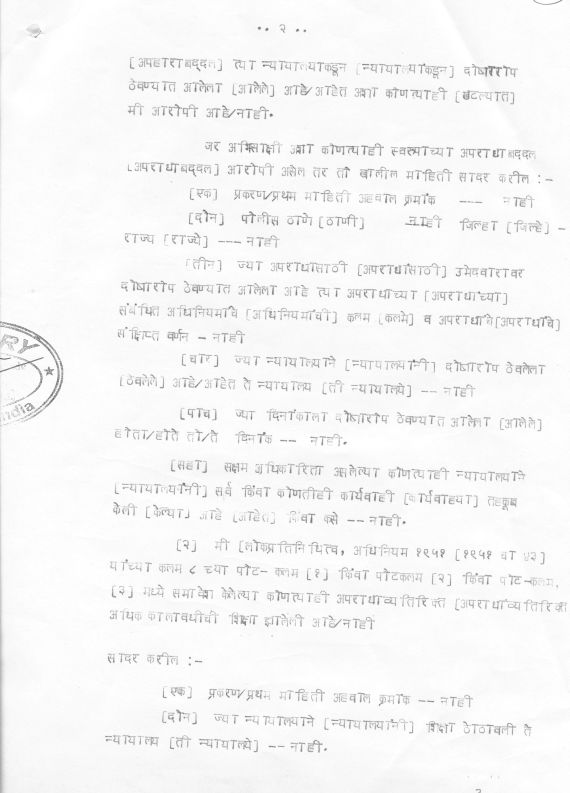 .. २ ..
[अपहाराबद्दल] त्या न्यायालयाकडून [न्यायालयांकडून] दोषारोप
ठेवण्यात आलेला [आलेले] आहे/आहेत अशा कोणत्याही [खटल्यात]
मी आरोपी आहे/नाही.
जर अभिसाक्षी अशा कोणत्याही स्वरूपाच्या अपराधाबद्दल
[अपराधाबद्दल] आरोपी असेल तर तो खालील माहिती सादर करील :-
[एक] प्रकरण/प्रथम माहिती अहवाल क्रमांक --- नाही
[दोन] पोलीस ठाणे [ठाणी] नाही जिल्हा [जिल्हे] -
राज्य [राज्ये] --- नाही
[तीन] ज्या अपराधासाठी [अपराधांसाठी] उमेदवारावर
दोषारोप ठेवण्यात आलेला आहे त्या अपराधाच्या [अपराधांच्या]
संबंधित अधिनियमाचे [अधिनियमांची] कलम [कलमे] व अपराधाचे [अपराधांचे]
संक्षिप्त वर्णन - नाही
[चार] ज्या न्यायालयाने [न्यायालयांनी] दोषारोप ठेवलेला
[ठेवलेले] आहे/आहेत ते न्यायालय [ती न्यायालये] -- नाही
[पाच] ज्या दिनांकाला दोषारोप ठेवण्यात आलेला [आलेले]
होता/होते तो/ते दिनांक -- नाही.
[सहा] सक्षम अधिकारिता असलेल्या कोणत्याही न्यायालयाने
[न्यायालयांनी] सर्व किंवा कोणतीही कार्यवाही [कार्यवाह्या] तहकूब
केली [केल्या] आहे [आहेत] किंवा कसे -- नाही.
[२] मी [लोकप्रतिनिधित्व, अधिनियम १९५१ [१९५१ चा ४३]
यांच्या कलम ८ च्या पोट- कलम [१] किंवा पोटकलम [२] किंवा पोट-कलम,
[३] मध्ये समावेश केलेल्या कोणत्याही अपराधाव्यतिरिक्त [अपराधांव्यतिरिक्त
अधिक कालावधीची शिक्षा झालेली आहे/नाही
सादर करील :-
[एक] प्रकरण/प्रथम माहिती अहवाल क्रमांक -- नाही
[दोन] ज्या न्यायालयाने [न्यायालयांनी] शिक्षा ठोठावली ते
न्यायालय [ती न्यायालये] -- नाही.
RY
ndia